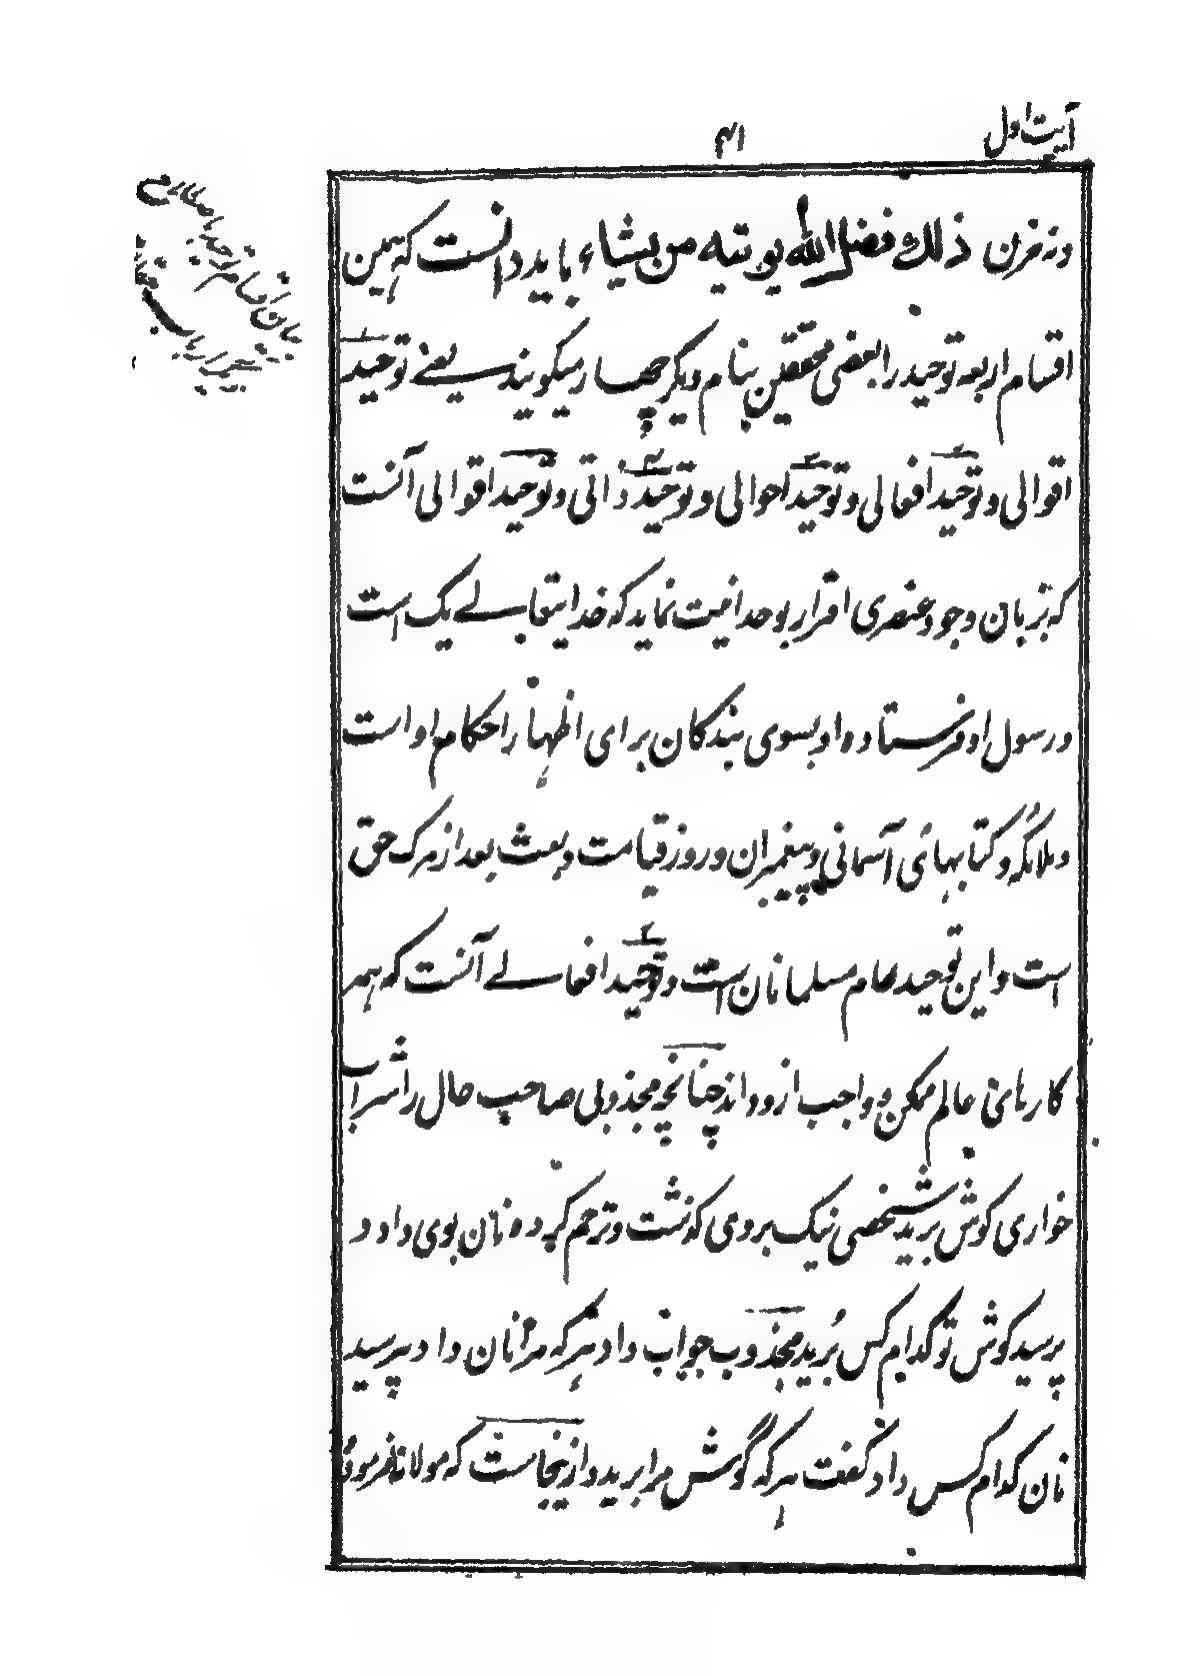 آیت اول
۴۱
ونه فرن ذلک فضل الله یوتیه من یشاء باید دانست که همین
اقسام اربعه توحید را بعضی محققین بنام دیگر چهار میگویند یعنے توحید
اقوالی و توحید افعالی و توحید احوالی و توحید ذاتی و توحید اقوالی آنست
که بزبان وجود عنصری اقرار بوحدانیت نماید که خدایتعالے یک است
ورسول او فرستاده او بسوی بندگان برای اظهار احکام او است
وملائکه و کتابهای آسمانی وپیغمبران وروز قیامت وبعث بعد از مرگ حق
است واین توحید عام مسلمانان است وتوحید افعالے آنست که همه
کارهای عالم ممکن و واجب ازو داند چنانچه مجذوبی صاحب حال را شراب
خواری گوش برید شخصی نیک بروی گذشت وترحم کرده نان بوی داد و
پرسید گوش تو کدام کس برید مجذوب جواب داد هرکه مرا نان داد پرسید
نان کدام کس داد گفت هرکه گوش مرا برید و ازینجاست که مولانا فرموده
بیان اقسام توحید باصطلاح
دیگر ارباب حقائق